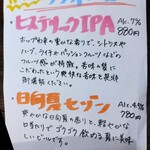 ヒステリックIPA Alc.7%
880円
ホップ由来の豊かな香りで、シトラスや
ハーブ、ライチ、パッションフルーツなどの
フルーツ感が特徴。苦味の質に
こだわったという爽快な苦味を是非
お楽しみください。
日向夏セゾン Alc.4.5%
780円
爽やかな日向夏の香りと、軽やかな
口当たりでゴクゴク飲める夏に美味
しいビールです。